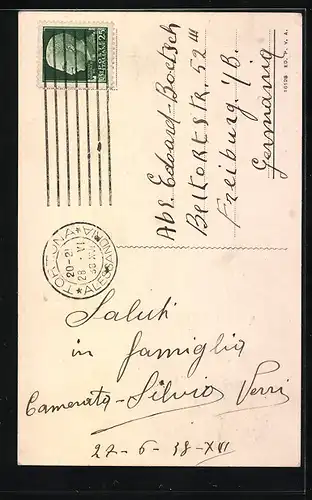 Abs. Edoard-Boetsch
Belfortstr. 52 III
Freiburg. i/B.
Germania
10128 ED. P. V. A.
POSTE
ITALIANE
TORTONA
20-21
28 . VI
38 XVI
* ALESSANDRIA *
Saluti
in famiglia
Camerata - Silvio Verri
27-6-38-XVI